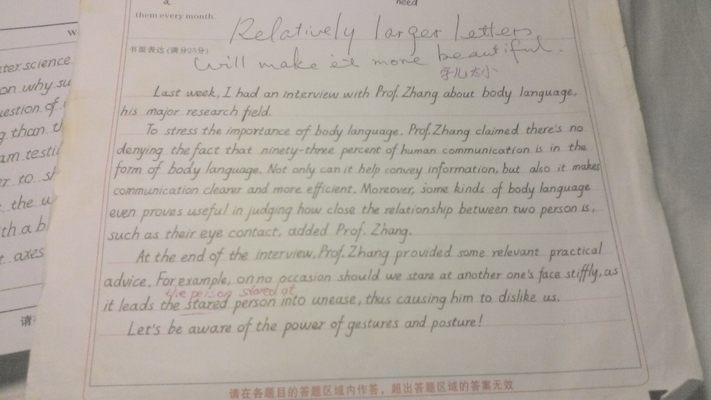 need
them every month.
书面表达(满分25分)
Relatively larger letters
will make it more beautiful.
字儿太小
Last week, I had an interview with Prof. Zhang about body language,
his major research field.
To stress the importance of body language, Prof. Zhang claimed there's no
denying the fact that ninety-three percent of human communication is in the
form of body language. Not only can it help convey information, but also it makes
communication clearer and more efficient. Moreover, some kinds of body language
even proves useful in judging how close the relationship between two person is,
such as their eye contact, added Prof. Zhang.
At the end of the interview, Prof. Zhang provided some relevant practical
advice. For example, on no occasion should we stare at another one's face stiffly, as
the person stared at
it leads the stared person into unease, thus causing him to dislike us.
Let's be aware of the power of gestures and posture!
请在各题目的答题区域内作答，超出答题区域的答案无效
ter science
on why su
uestion of
g than th
am testi
er to sh
the w
th a b
axes
请